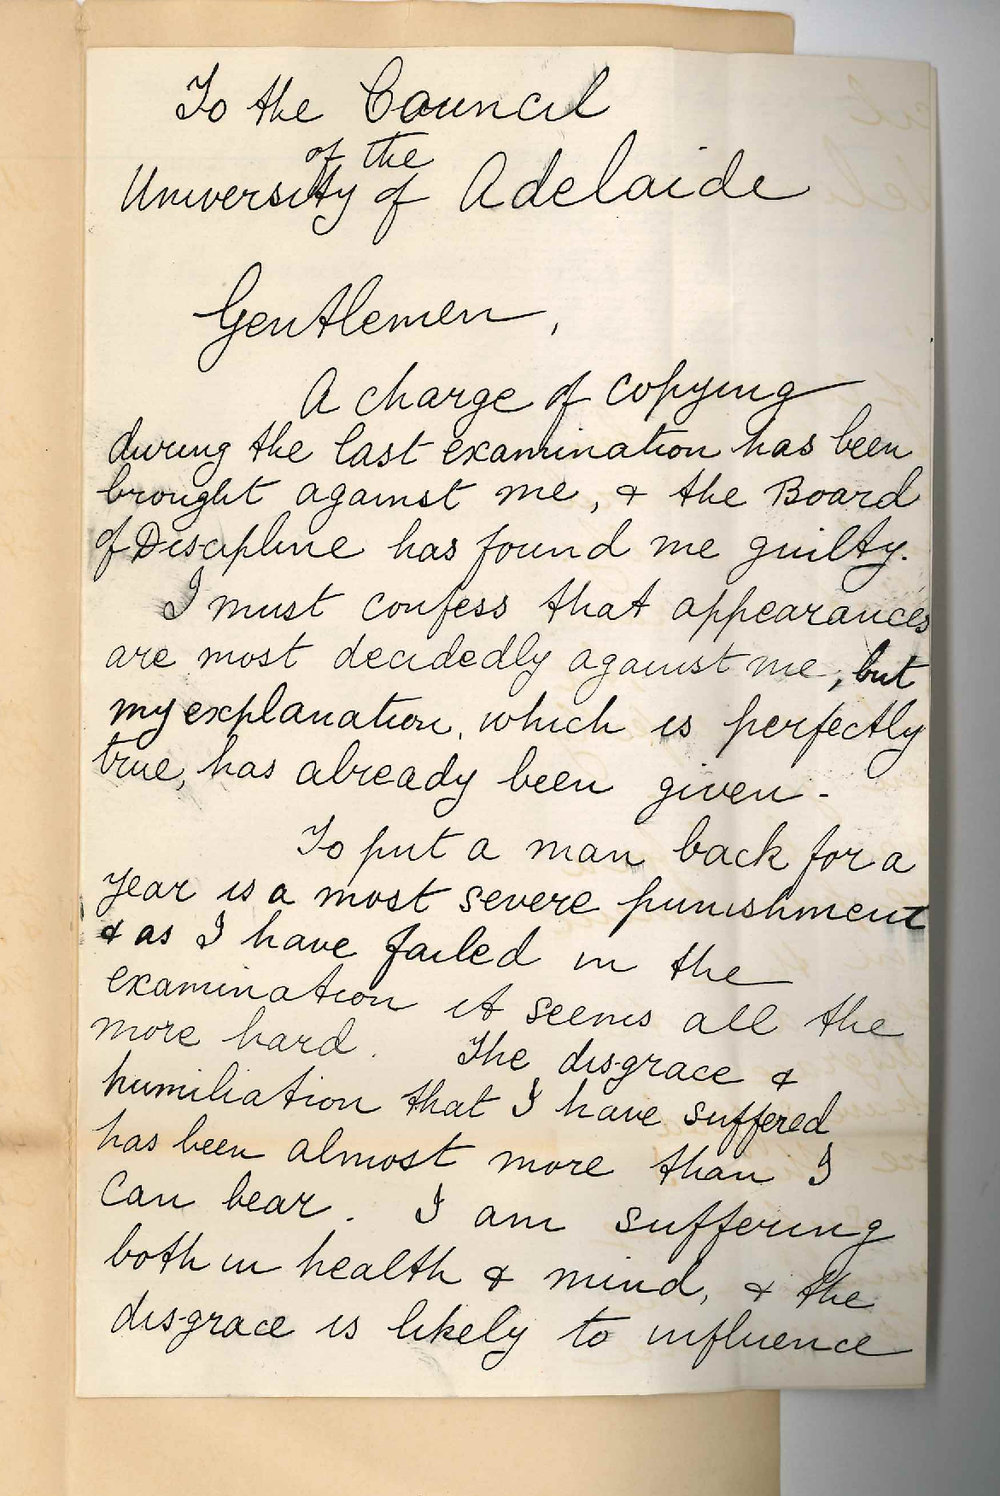 To the Council
of the
University of Adelaide
Gentlemen,
A charge of copying
during the last examination has been
brought against me, & the Board
of Discipline has found me guilty.
I must confess that appearances
are most decidedly against me, but
my explanation, which is perfectly
true, has already been given.
To put a man back for a
year is a most severe punishment
& as I have failed in the
examination it seems all the
more hard. The disgrace &
humiliation that I have suffered
has been almost more than I
can bear. I am suffering
both in health & mind, & the
disgrace is likely to influence